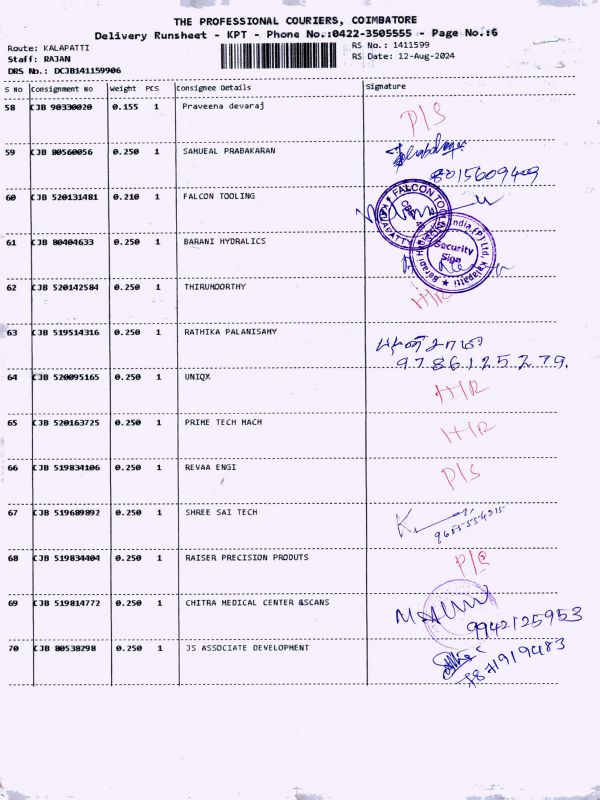 THE PROFESSIONAL COURIERS, COIMBATORE
Delivery Runsheet - KPT - Phone No.:0422-3505555 - Page No.:6
Route: KALAPATTI RS No.: 1411599
Staff: RAJAN RS Date: 12-Aug-2024
DRS No.: DCJB141159906
S No Consignment No Weight PCS Consignee Details Signature
58 CJB 90330020 0.155 1 Praveena devaraj P/S
59 CJB 80560056 0.250 1 SAMUEAL PRABAKARAN
8015609409
60 CJB 520131481 0.210 1 FALCON TOOLING
FALCON TOOL
61 CJB 80404633 0.250 1 BARANI HYDRALICS
India (P) Ltd, Kalapatti
Security
Sign
62 CJB 520142584 0.250 1 THIRUMOORTHY H/R
63 CJB 519514316 0.250 1 RATHIKA PALANISAMY
9786125279.
64 CJB 520095165 0.250 1 UNIQX H/R
65 CJB 520163725 0.250 1 PRIME TECH MACH H/R
66 CJB 519834106 0.250 1 REVAA ENGI P/S
67 CJB 519689892 0.250 1 SHREE SAI TECH
68 CJB 519834404 0.250 1 RAISER PRECISION PRODUTS P/S
69 CJB 519814772 0.250 1 CHITRA MEDICAL CENTER &SCANS
9942125953
70 CJB 80538298 0.250 1 JS ASSOCIATE DEVELOPMENT
7871919483